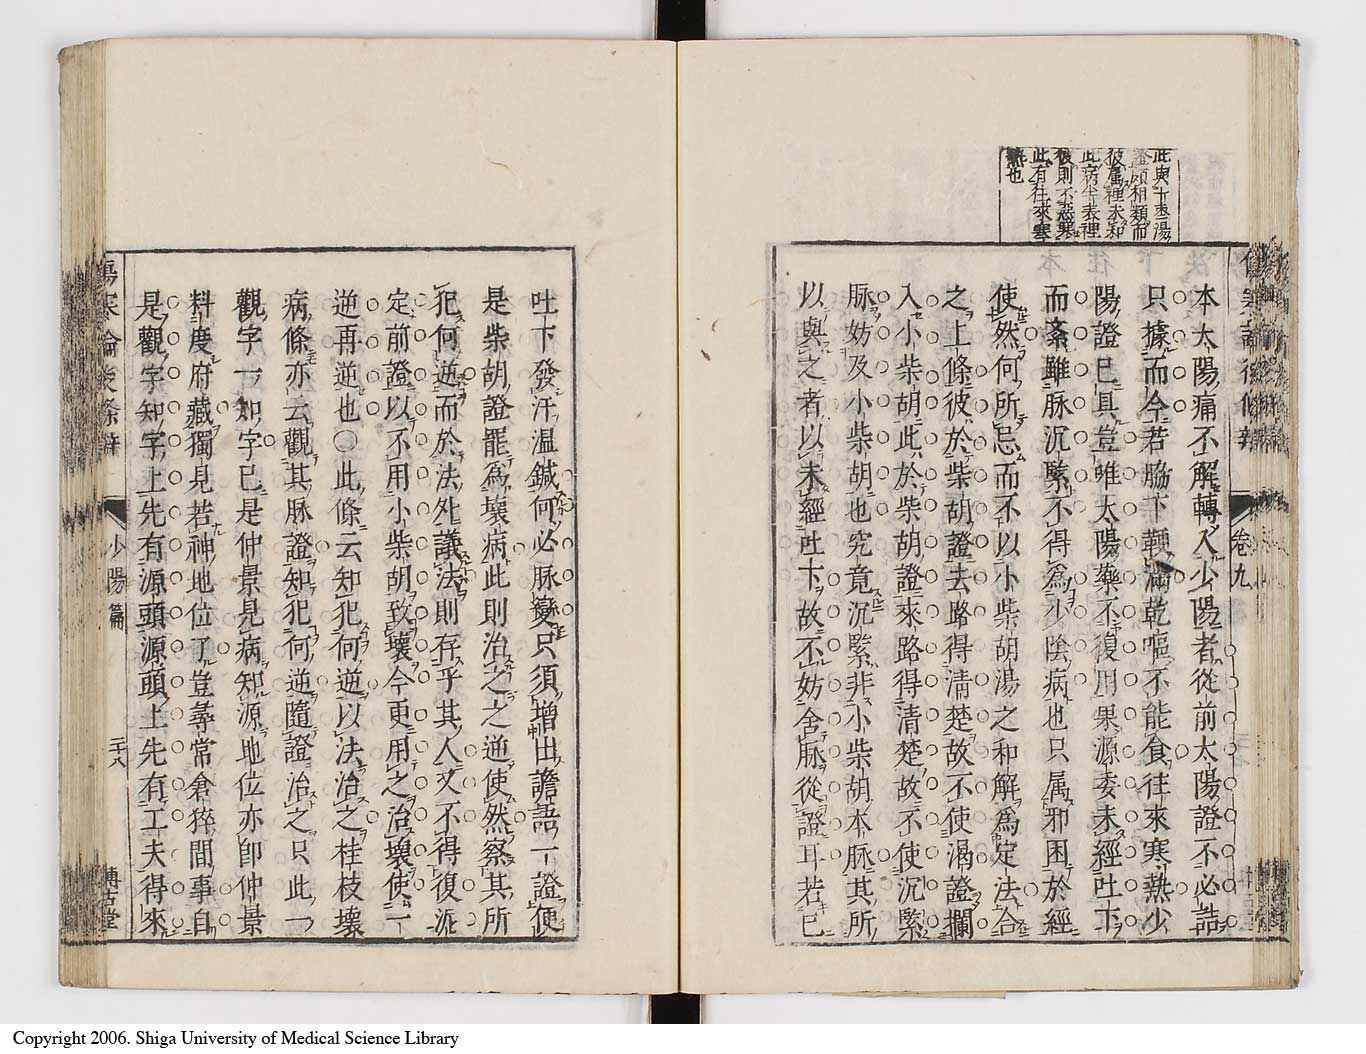 此與十棗湯
證頗相類而
彼属裡未和
此病半表裡
彼則不惡寒
此有往來寒
熱也
卷九
本太陽病不解轉入少陽者從前太陽證不必詰
只據而今若脇下鞕滿乾嘔不能食往來寒熱少
陽證已具豈唯太陽藥不復用果源委未經吐下
而脉沉緊不得為少陰病也只属邪困於經
使然何所忌而不以小柴胡湯之和解為定法合
之上條彼於柴胡證去路得清楚故不使渴證攔
入小柴胡此於柴胡證來路得清楚故不使沉緊
脉妨及小柴胡也究竟沉緊非小柴胡本脉其所
以與之者以未經吐下故不妨舍脉從證耳若已
吐下發汗温鍼何必脉變只須增出譫語一證便
是柴胡證罷為壞病此則治之之逆使然察其所
犯何逆而於法外議法則存乎其人又不得復泥
定前證以不用小柴胡致壞今更用之治壞使一
逆再逆也○此條云知犯何逆以法治之桂枝壞
病條亦云觀其脉證知犯何逆隨證治之只此一
觀字一知字已是仲景見病知源地位亦卽仲景
料度府藏獨見若神地位了豈尋常倉猝間事自
是觀字知字上先有源頭源頭上先有工夫得來
傷寒論後條辨
少陽篇
二十八
博古堂
Copyright 2006. Shiga University of Medical Science Library